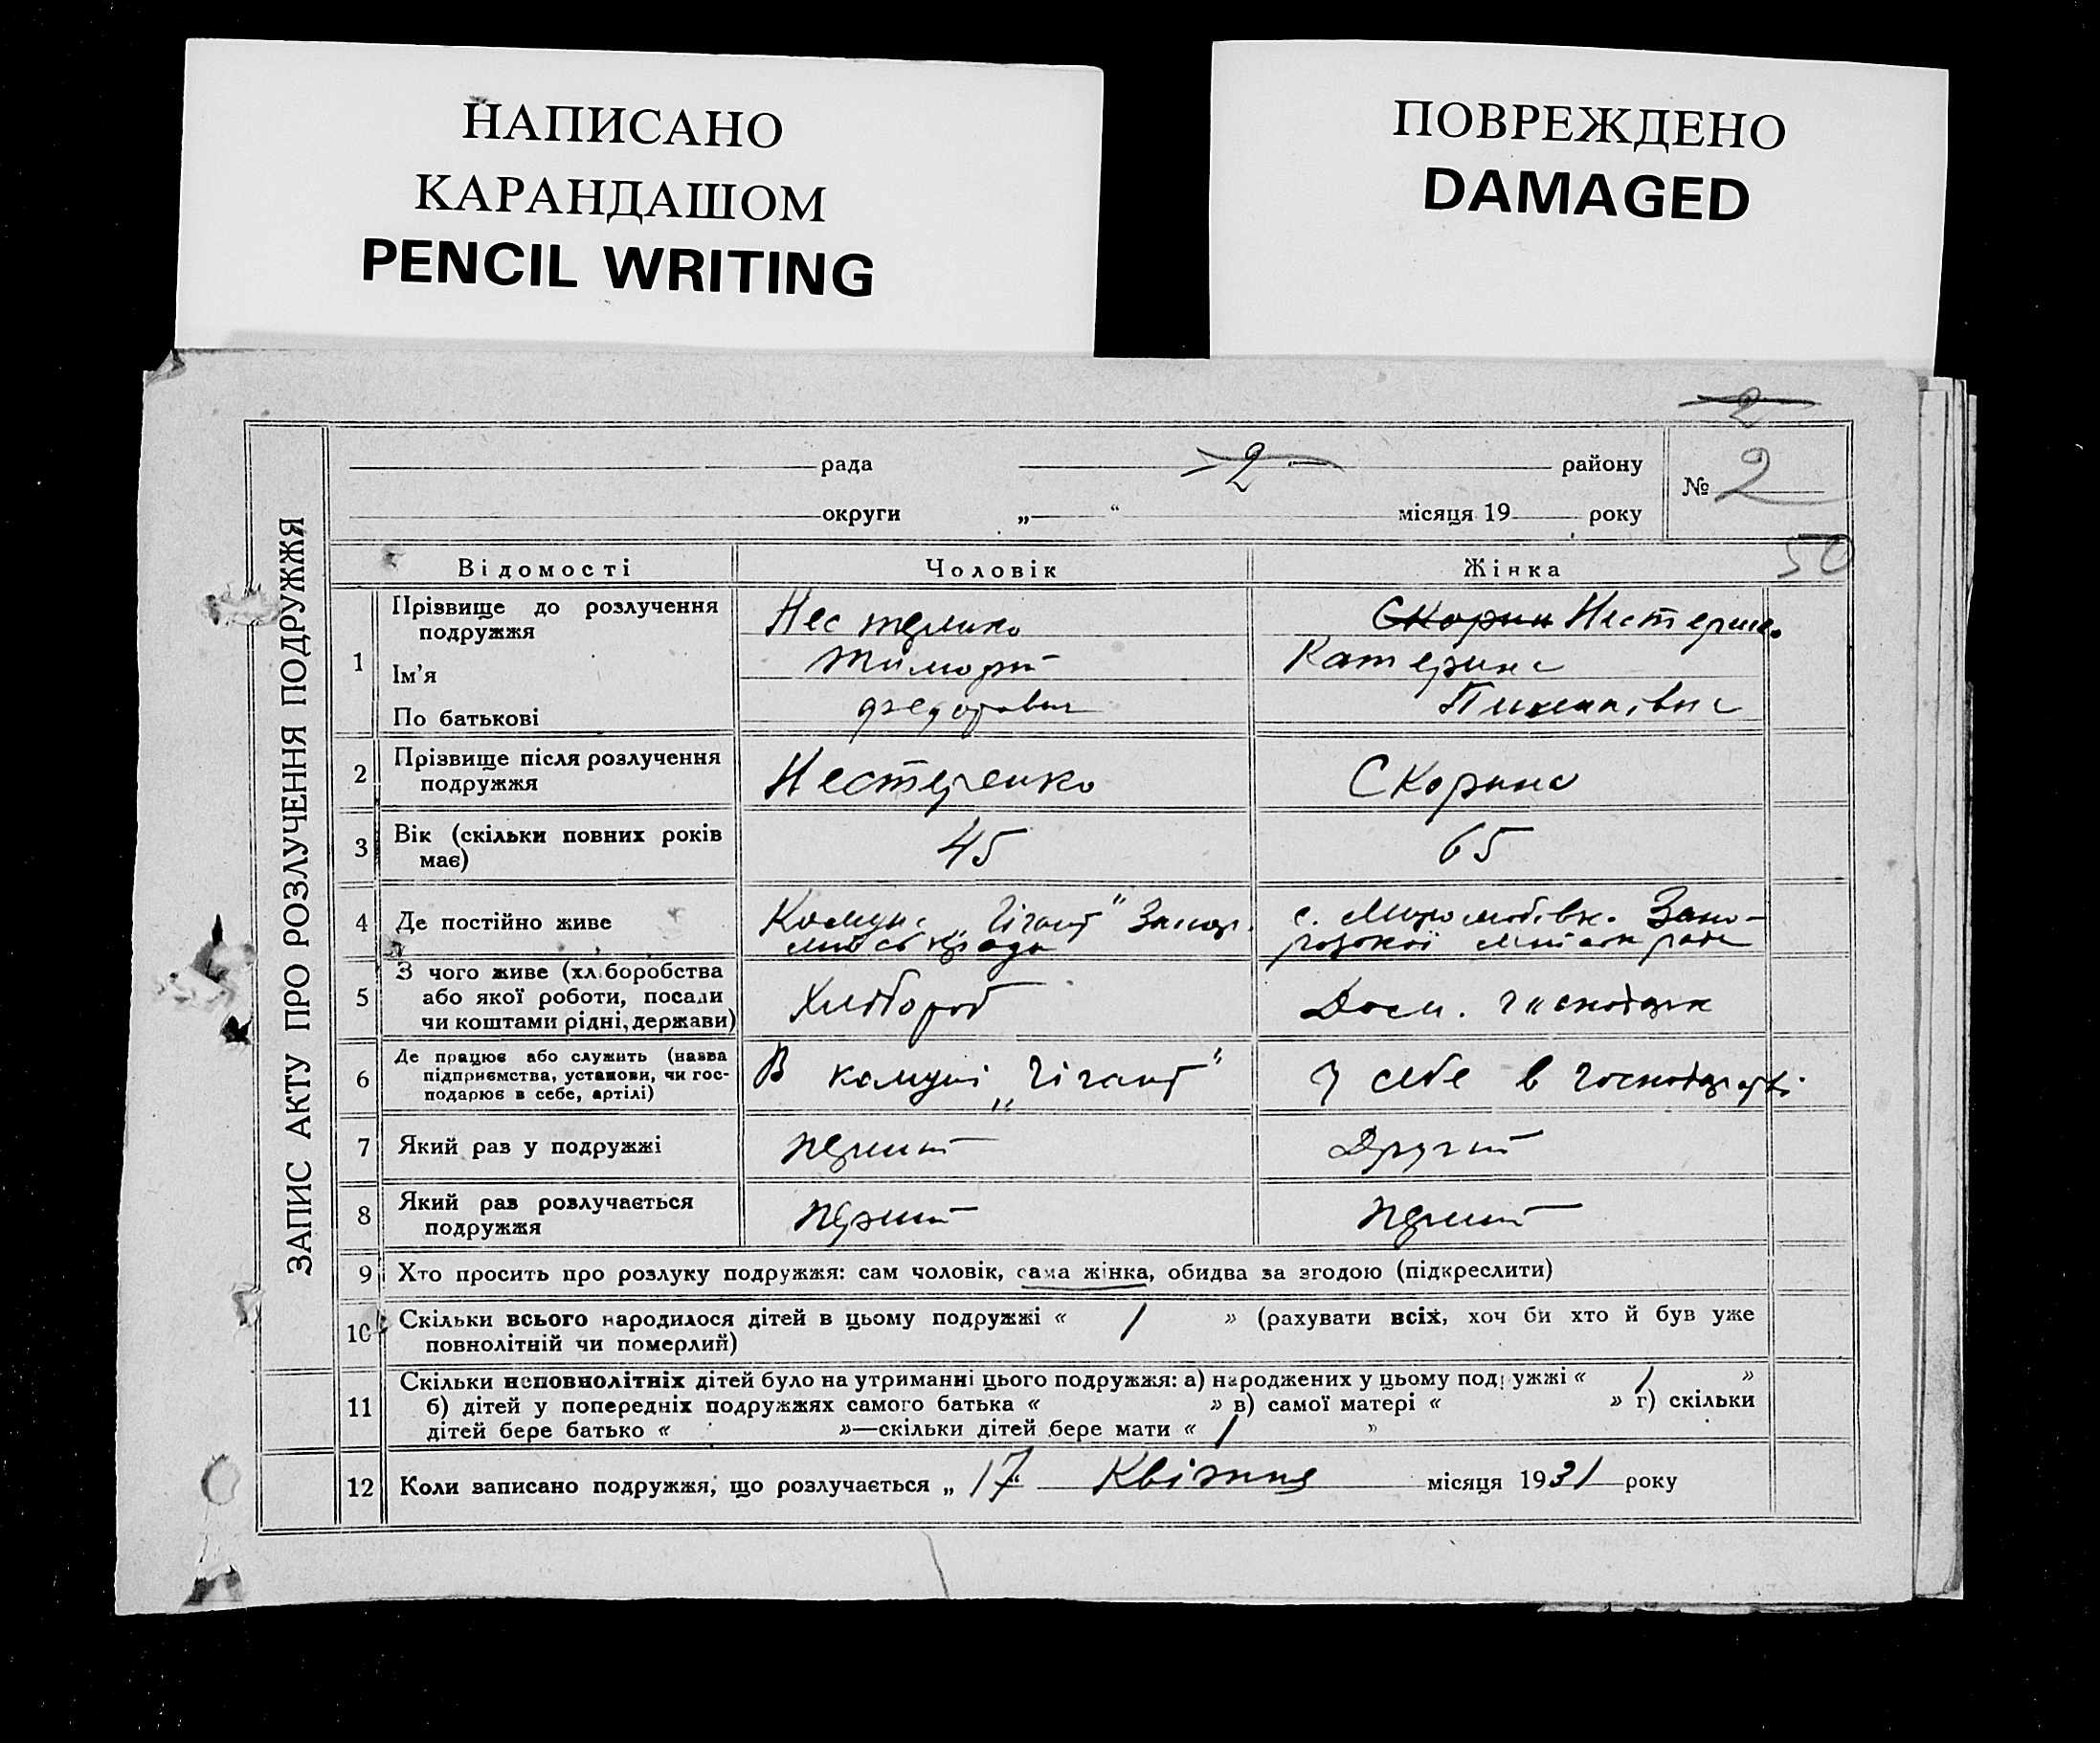 НАПИСАНО
КАРАНДАШОМ
PENCIL WRITING
ПОВРЕЖДЕНО
DAMAGED
2
ЗАПИС АКТУ ПРО РОЗЛУЧЕННЯ ПОДРУЖЖЯ
рада 2 району
округи „ “ місяця 19 року
№ 2
50
Відомості Чоловік Жінка
1
Прізвище до розлучення
подружжя
Нестеренко
Скорин Нестеренко
Ім'я
Тимофій
Катерина
По батькові
Федорович
2
Прізвище після розлучення
подружжя
Нестеренко
Скорина
3
Вік (скільки повних років
має)
45
65
4
Де постійно живе
Комуна „Гігант“ Запор.
міськради
с. Запо-
розької міськради
5
З чого живе (хліборобства
або якої роботи, посади
чи коштами рідні, держави)
Хлібороб
Дом. господарк
6
Де працює або служить (назва
підприємства, установи, чи гос-
подарює в себе, артілі)
В комуні „Гігант“
У себе в господарстві
7
Який раз у подружжі
перший
Другий
8
Який раз розлучається
подружжя
перший
перший
9
Хто просить про розлуку подружжя: сам чоловік, сама жінка, обидва за згодою (підкреслити)
10
Скільки всього народилося дітей в цьому подружжі « 1 » (рахувати всіх, хоч би хто й був уже
повнолітній чи померлий)
11
Скільки неповнолітніх дітей було на утриманні цього подружжя: а) народжених у цьому подружжі « 1 »
б) дітей у попередніх подружжях самого батька « » в) самої матері « » г) скільки
дітей бере батько « »—скільки дітей бере мати « 1 »
12
Коли записано подружжя, що розлучається „ 17 “ Квітня місяця 1931 року